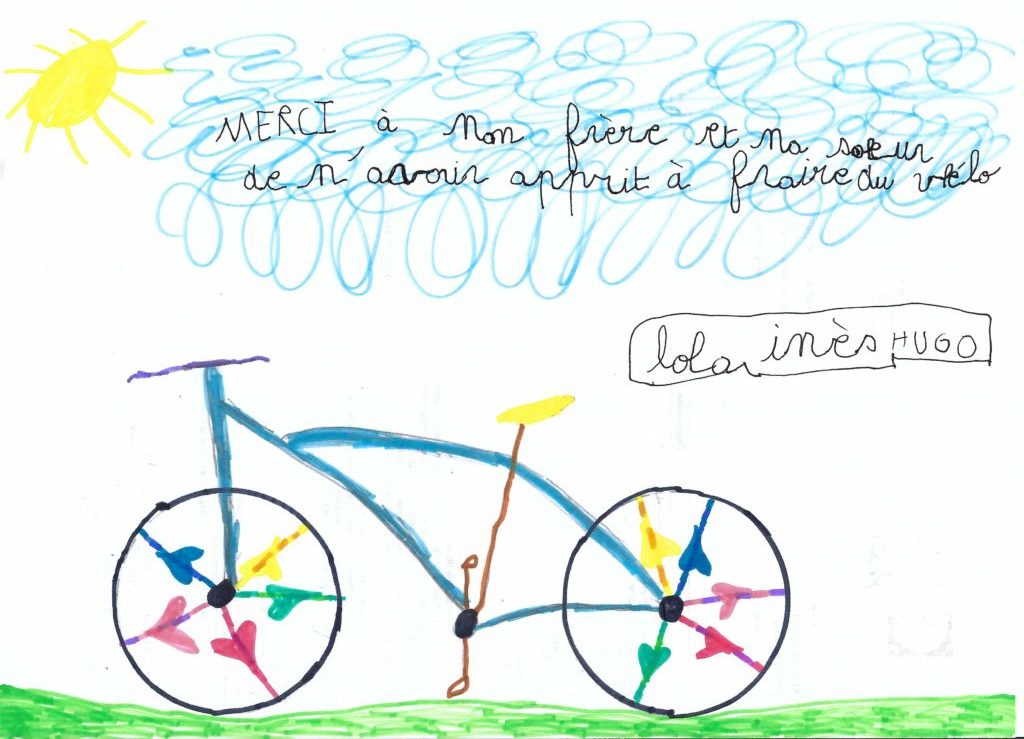 MERCI à mon frère et ma soeur
de m'avoir apprit à fraire du vélo
lola inès HUGO